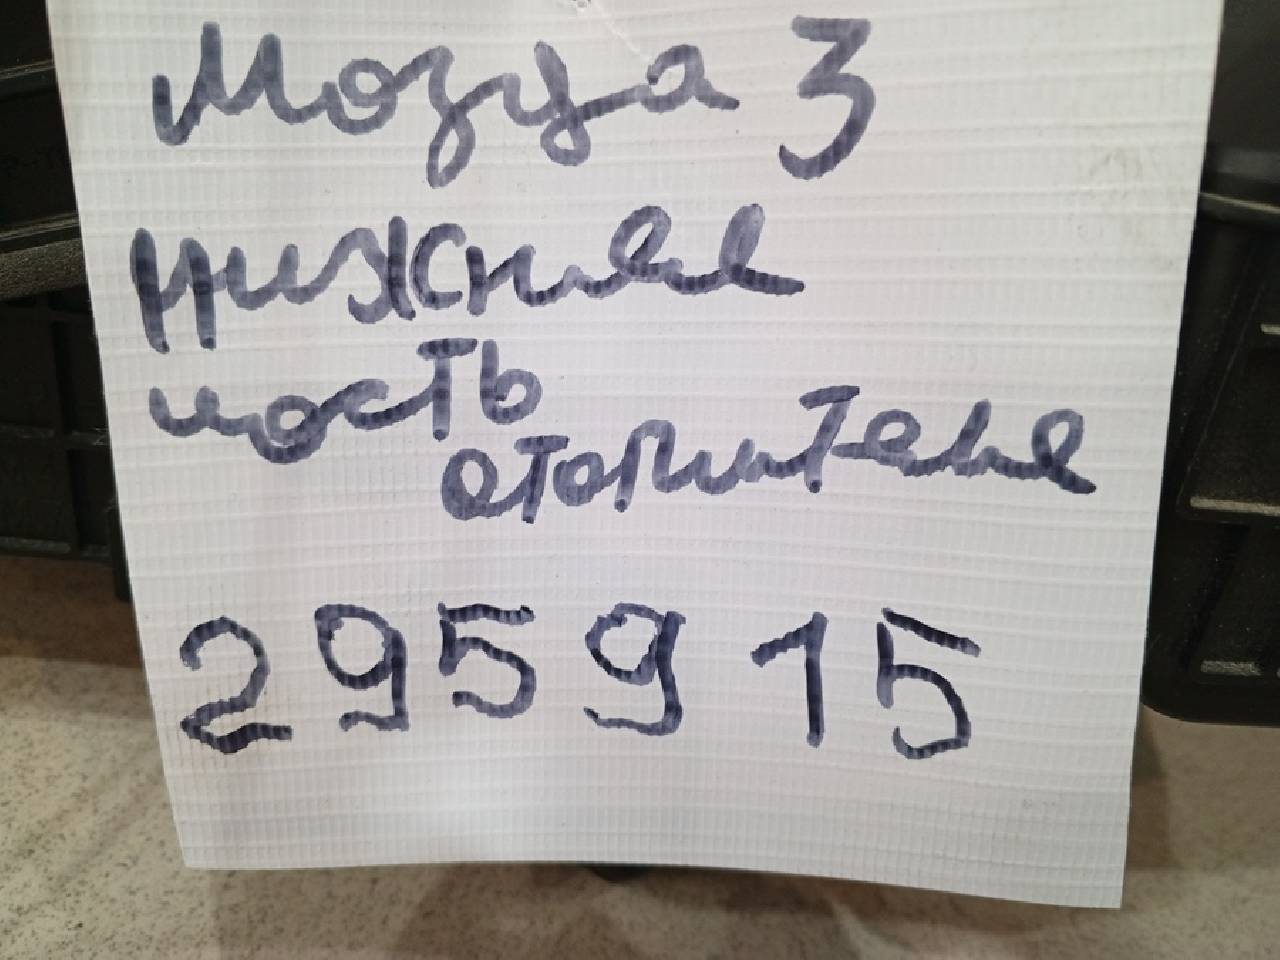 Мозда 3
нижнее
часть
отопителе
295915